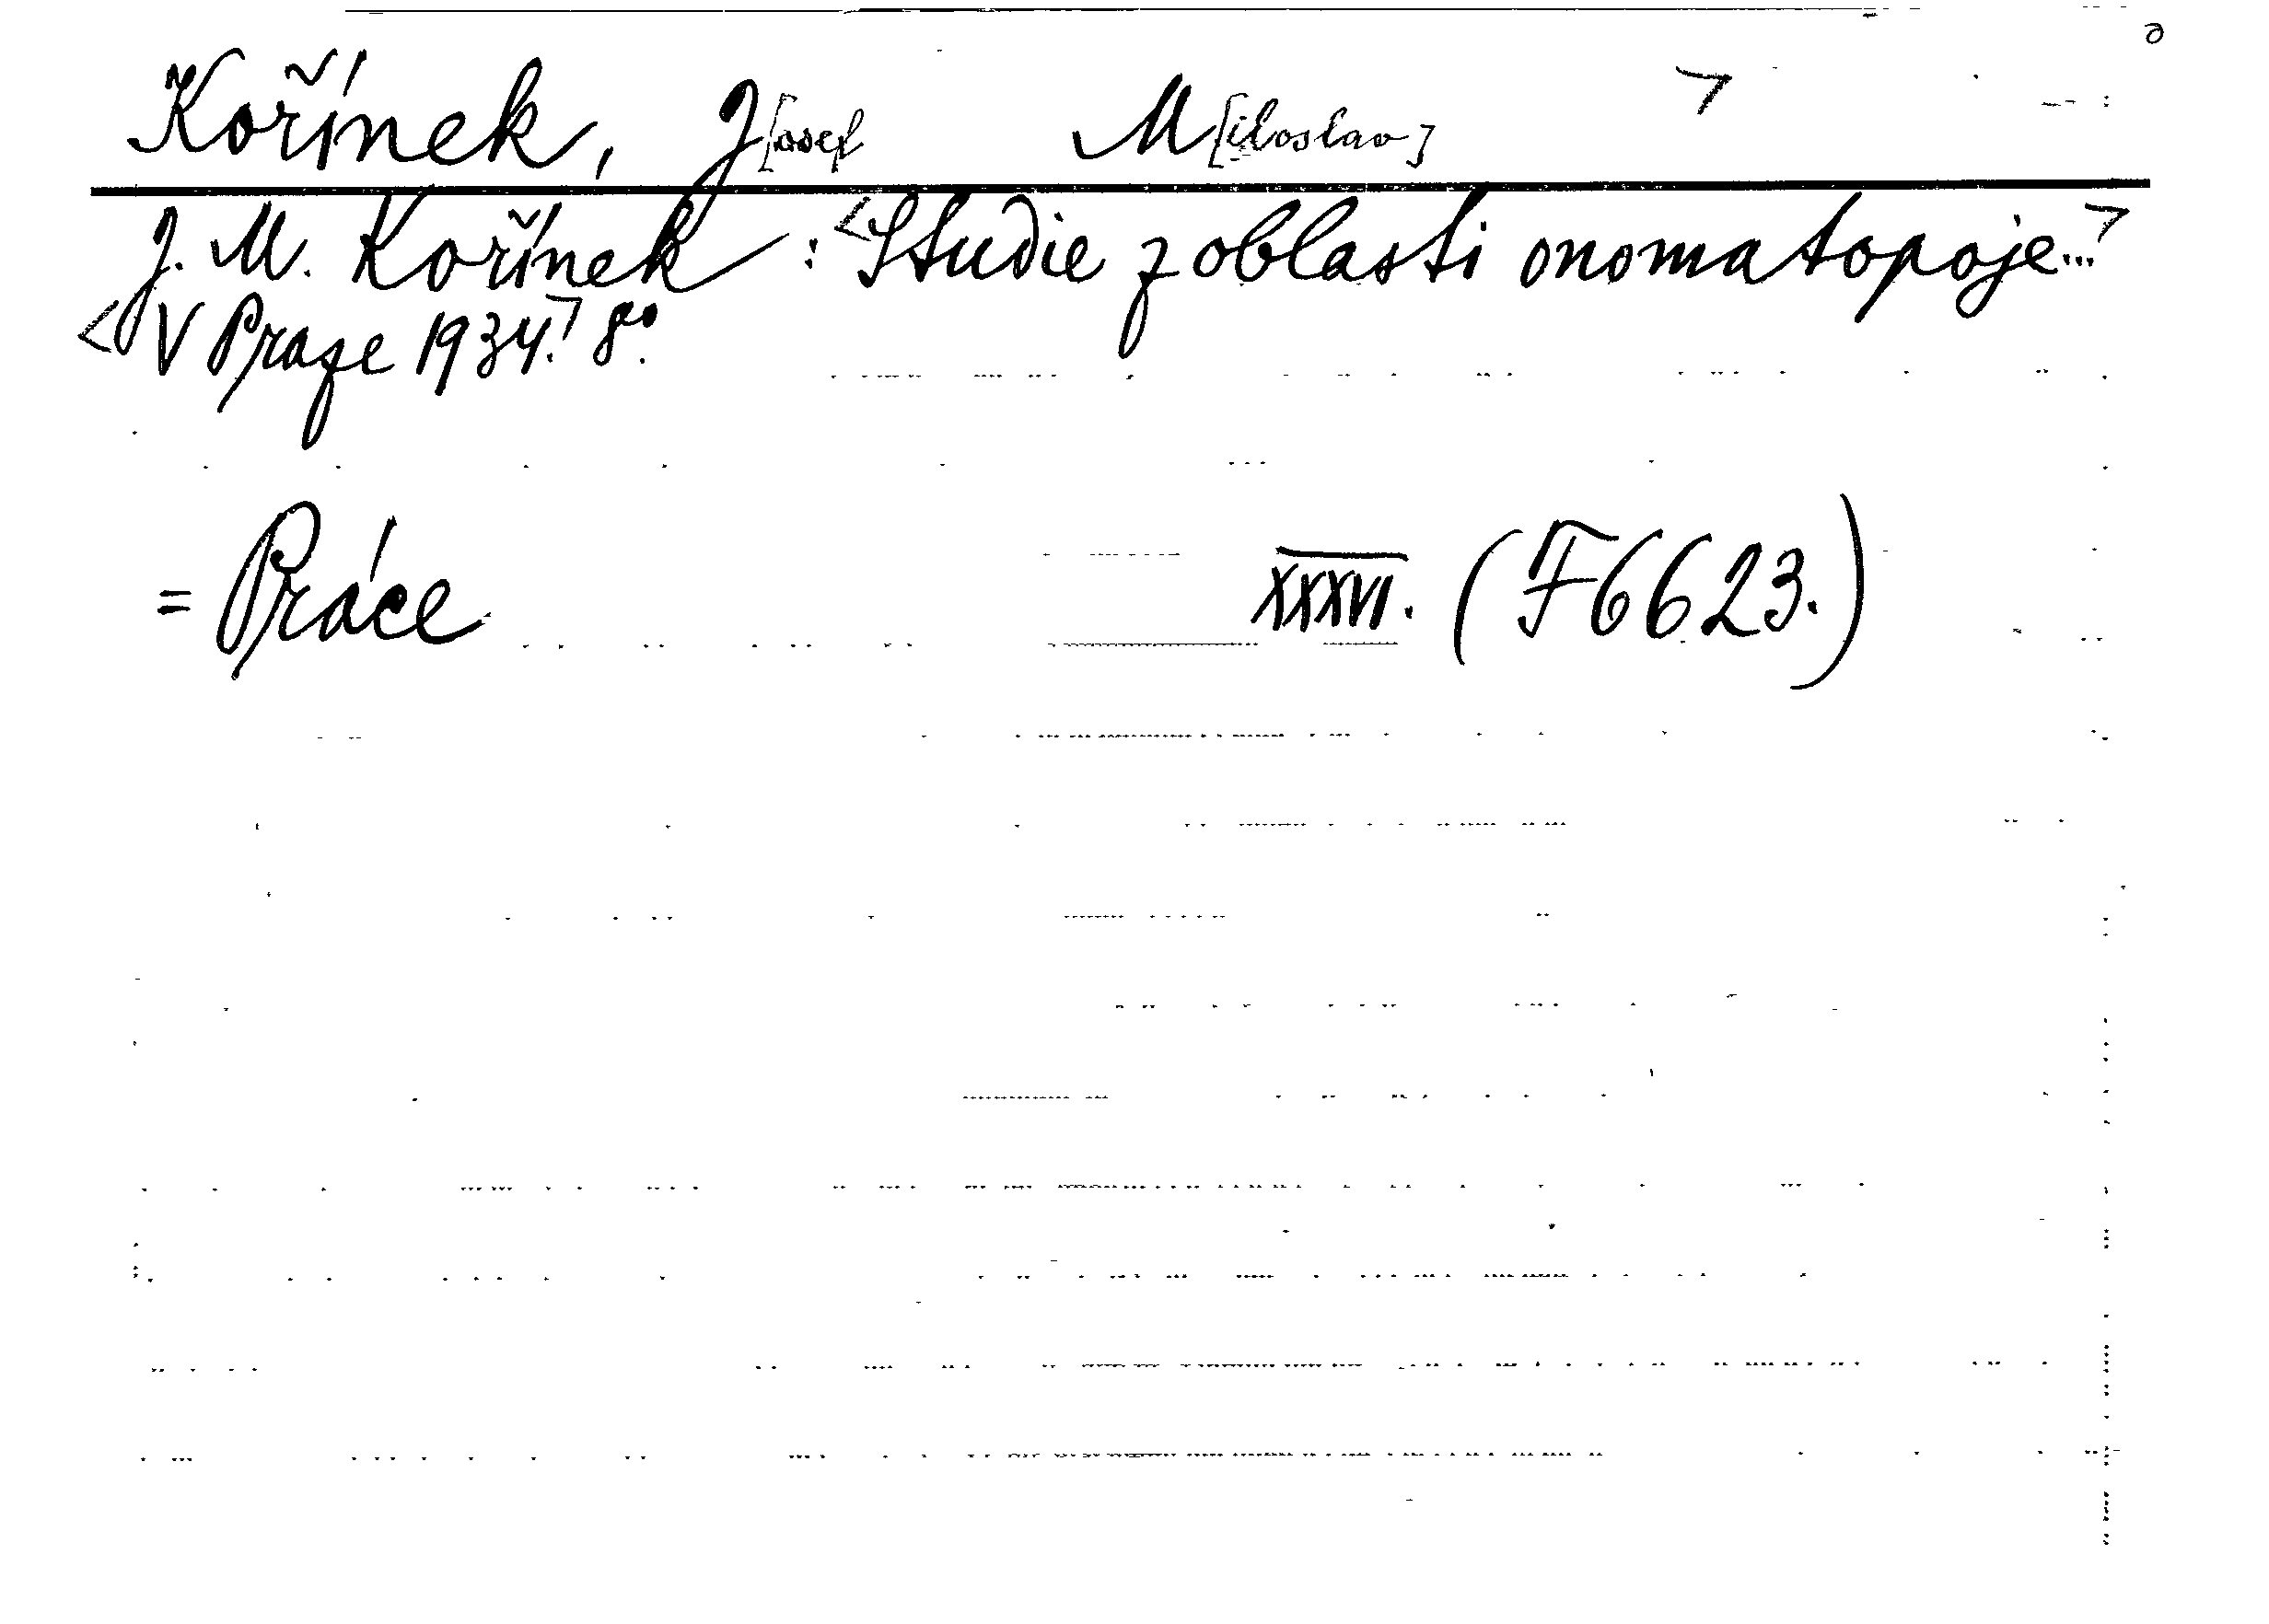 Kořínek, J[osef M[iloslav] >
J. M. Kořínek : <Studie z oblasti onomatopoje...>
<V Praze 1934.> 8º.
= Práce XXXVI. (F6623.)